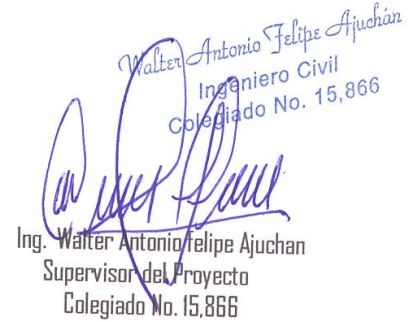 Walter Antonio Felipe Ajuchán
Ingeniero Civil
Colegiado No. 15,866
Ing. Walter Antonio felipe Ajuchan
Supervisor del Proyecto
Colegiado No. 15,866